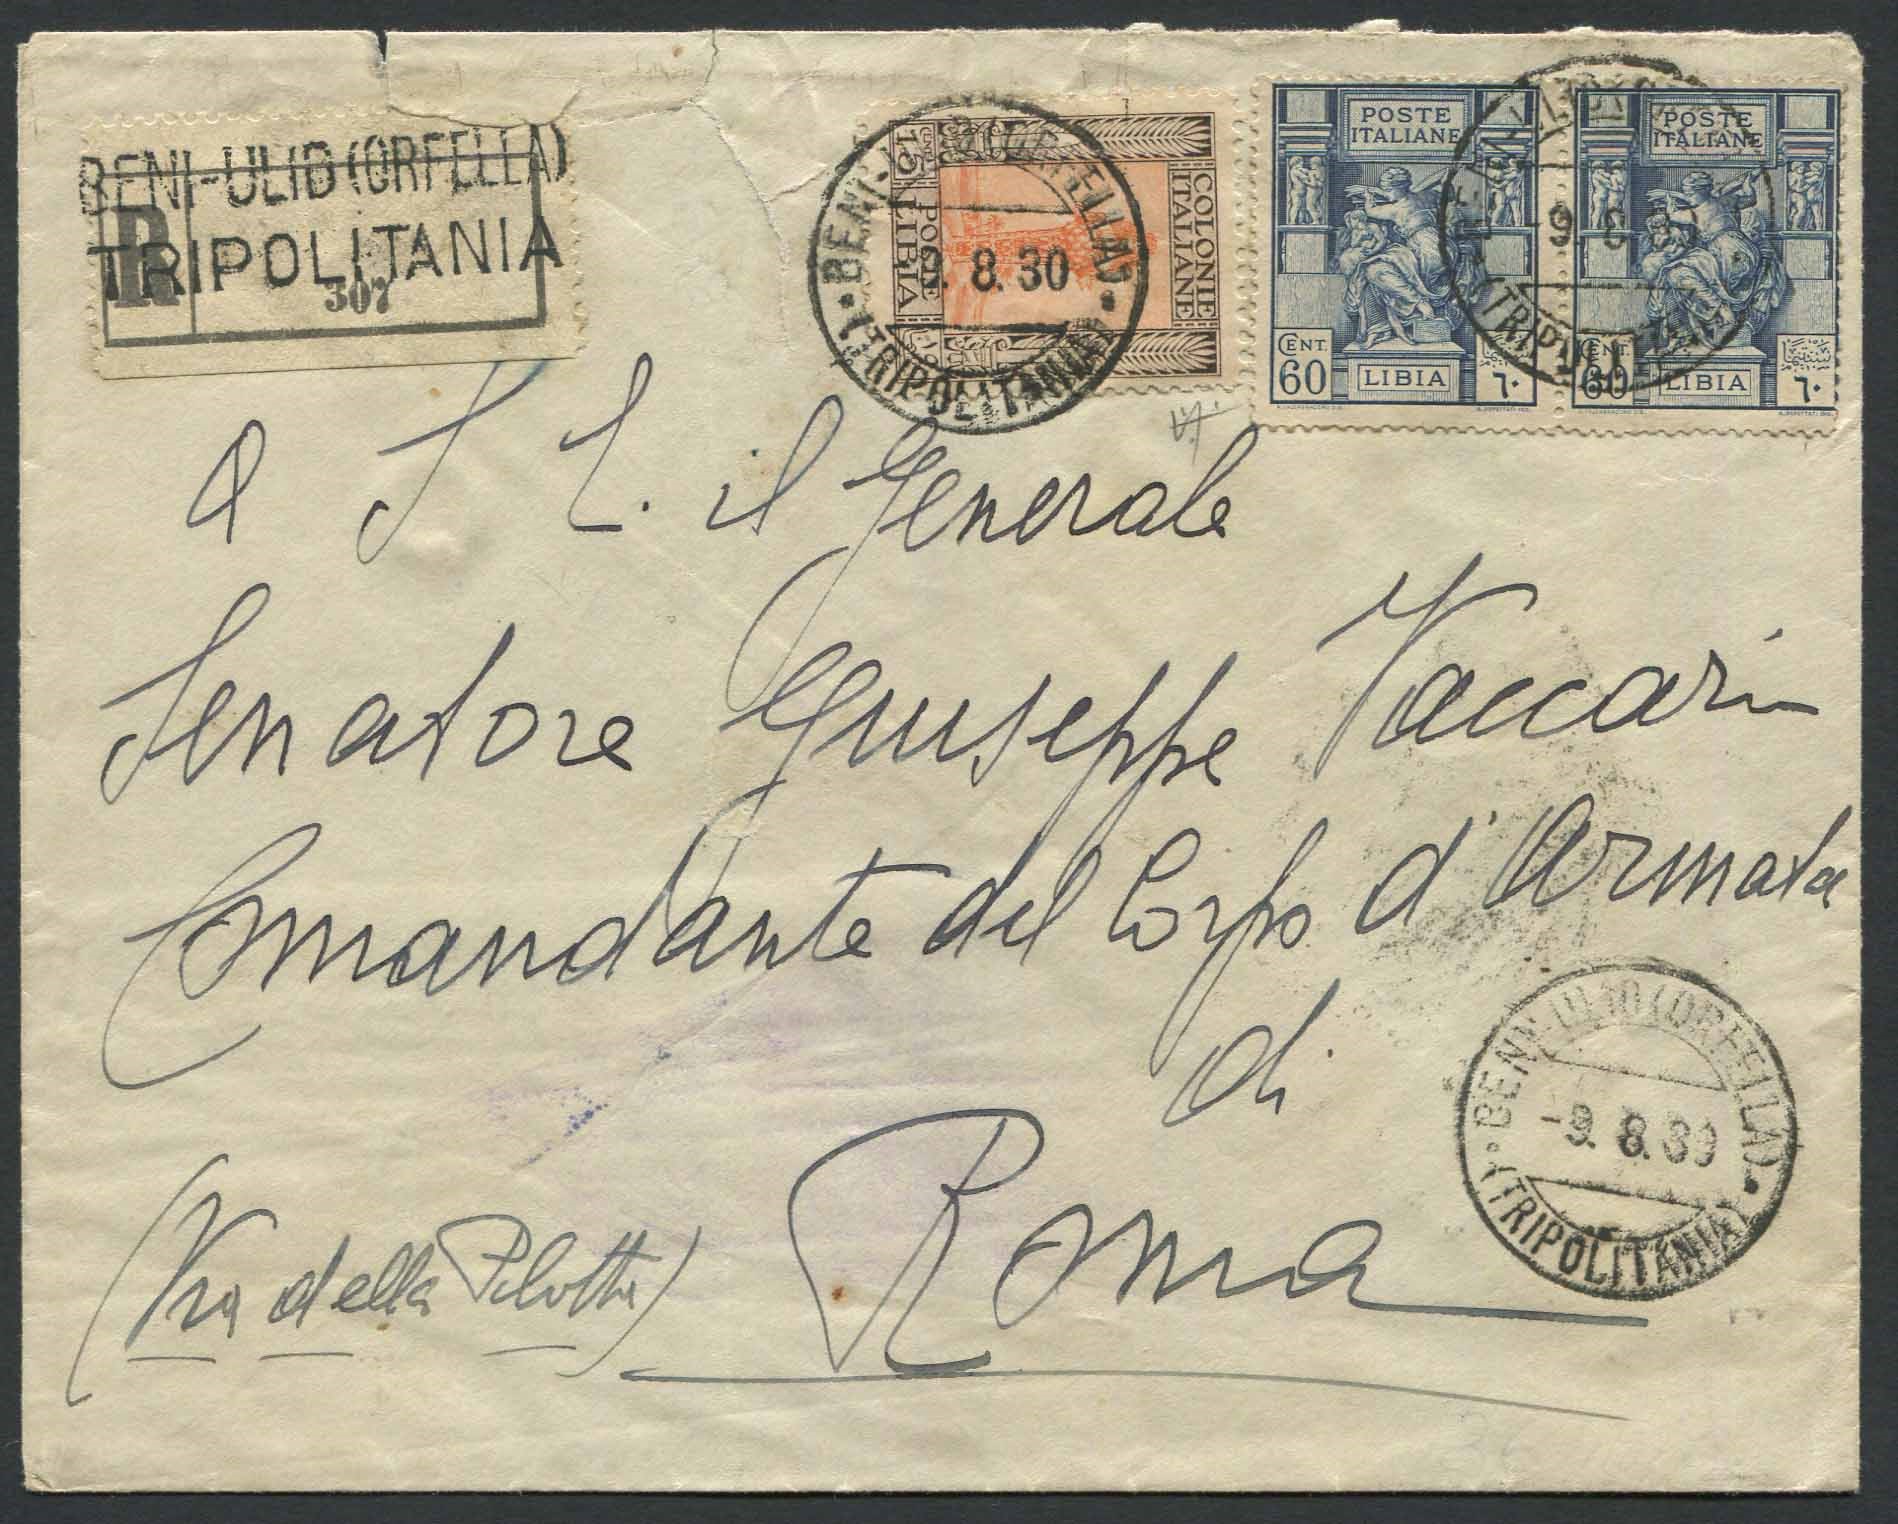 BENI-ULID (ORFELLA)
TRIPOLITANIA
R
307
COLONIE
ITALIANE
POSTE
LIBIA
CENT.
15
BENI-ULID (ORFELLA)
9. 8. 30
(TRIPOLITANIA)
POSTE
ITALIANE
CENT.
60
LIBIA
٦٠
POSTE
ITALIANE
CENT.
60
LIBIA
٦٠
-9. 8
(TRIPOLITANIA)
A S E. il Generale
Senatore Giuseppe Vaccari
Comandante del Corpo d'Armata
di
Roma
(Via della Pilotta)
BENI-ULID (ORFELLA)
-9. 8. 30
(TRIPOLITANIA)